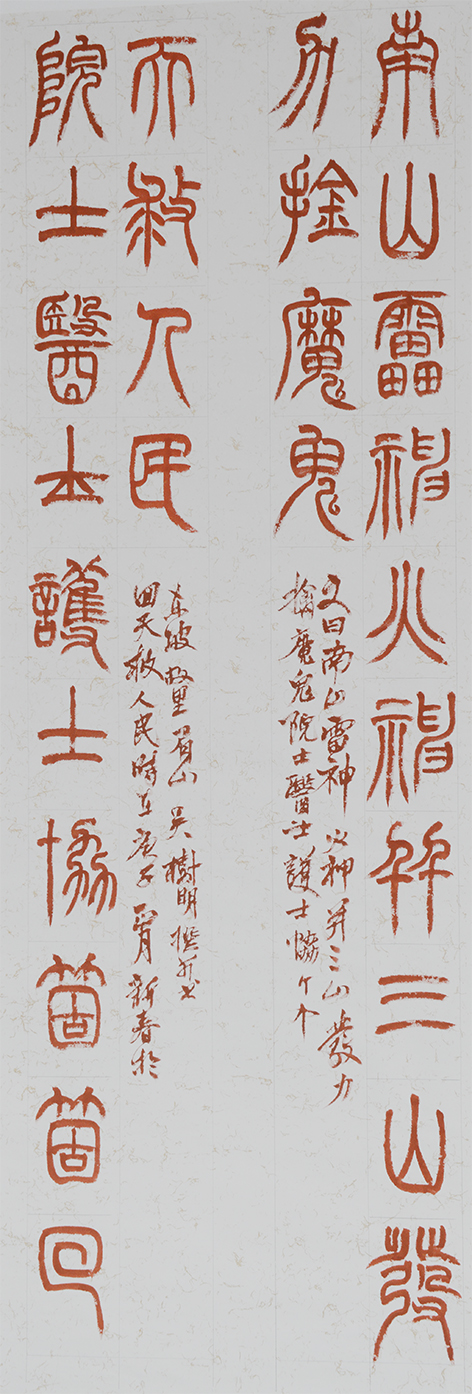 南山靁神火神幷三山發
力捡魔鬼
院士醫士護士協箇箇回
天救人民
文曰南山雷神火神并三山發力
擒魔鬼院士醫士護士恊个个
回天救人民時在庚子月新春於
東坡故里眉山吳樹明撰并书